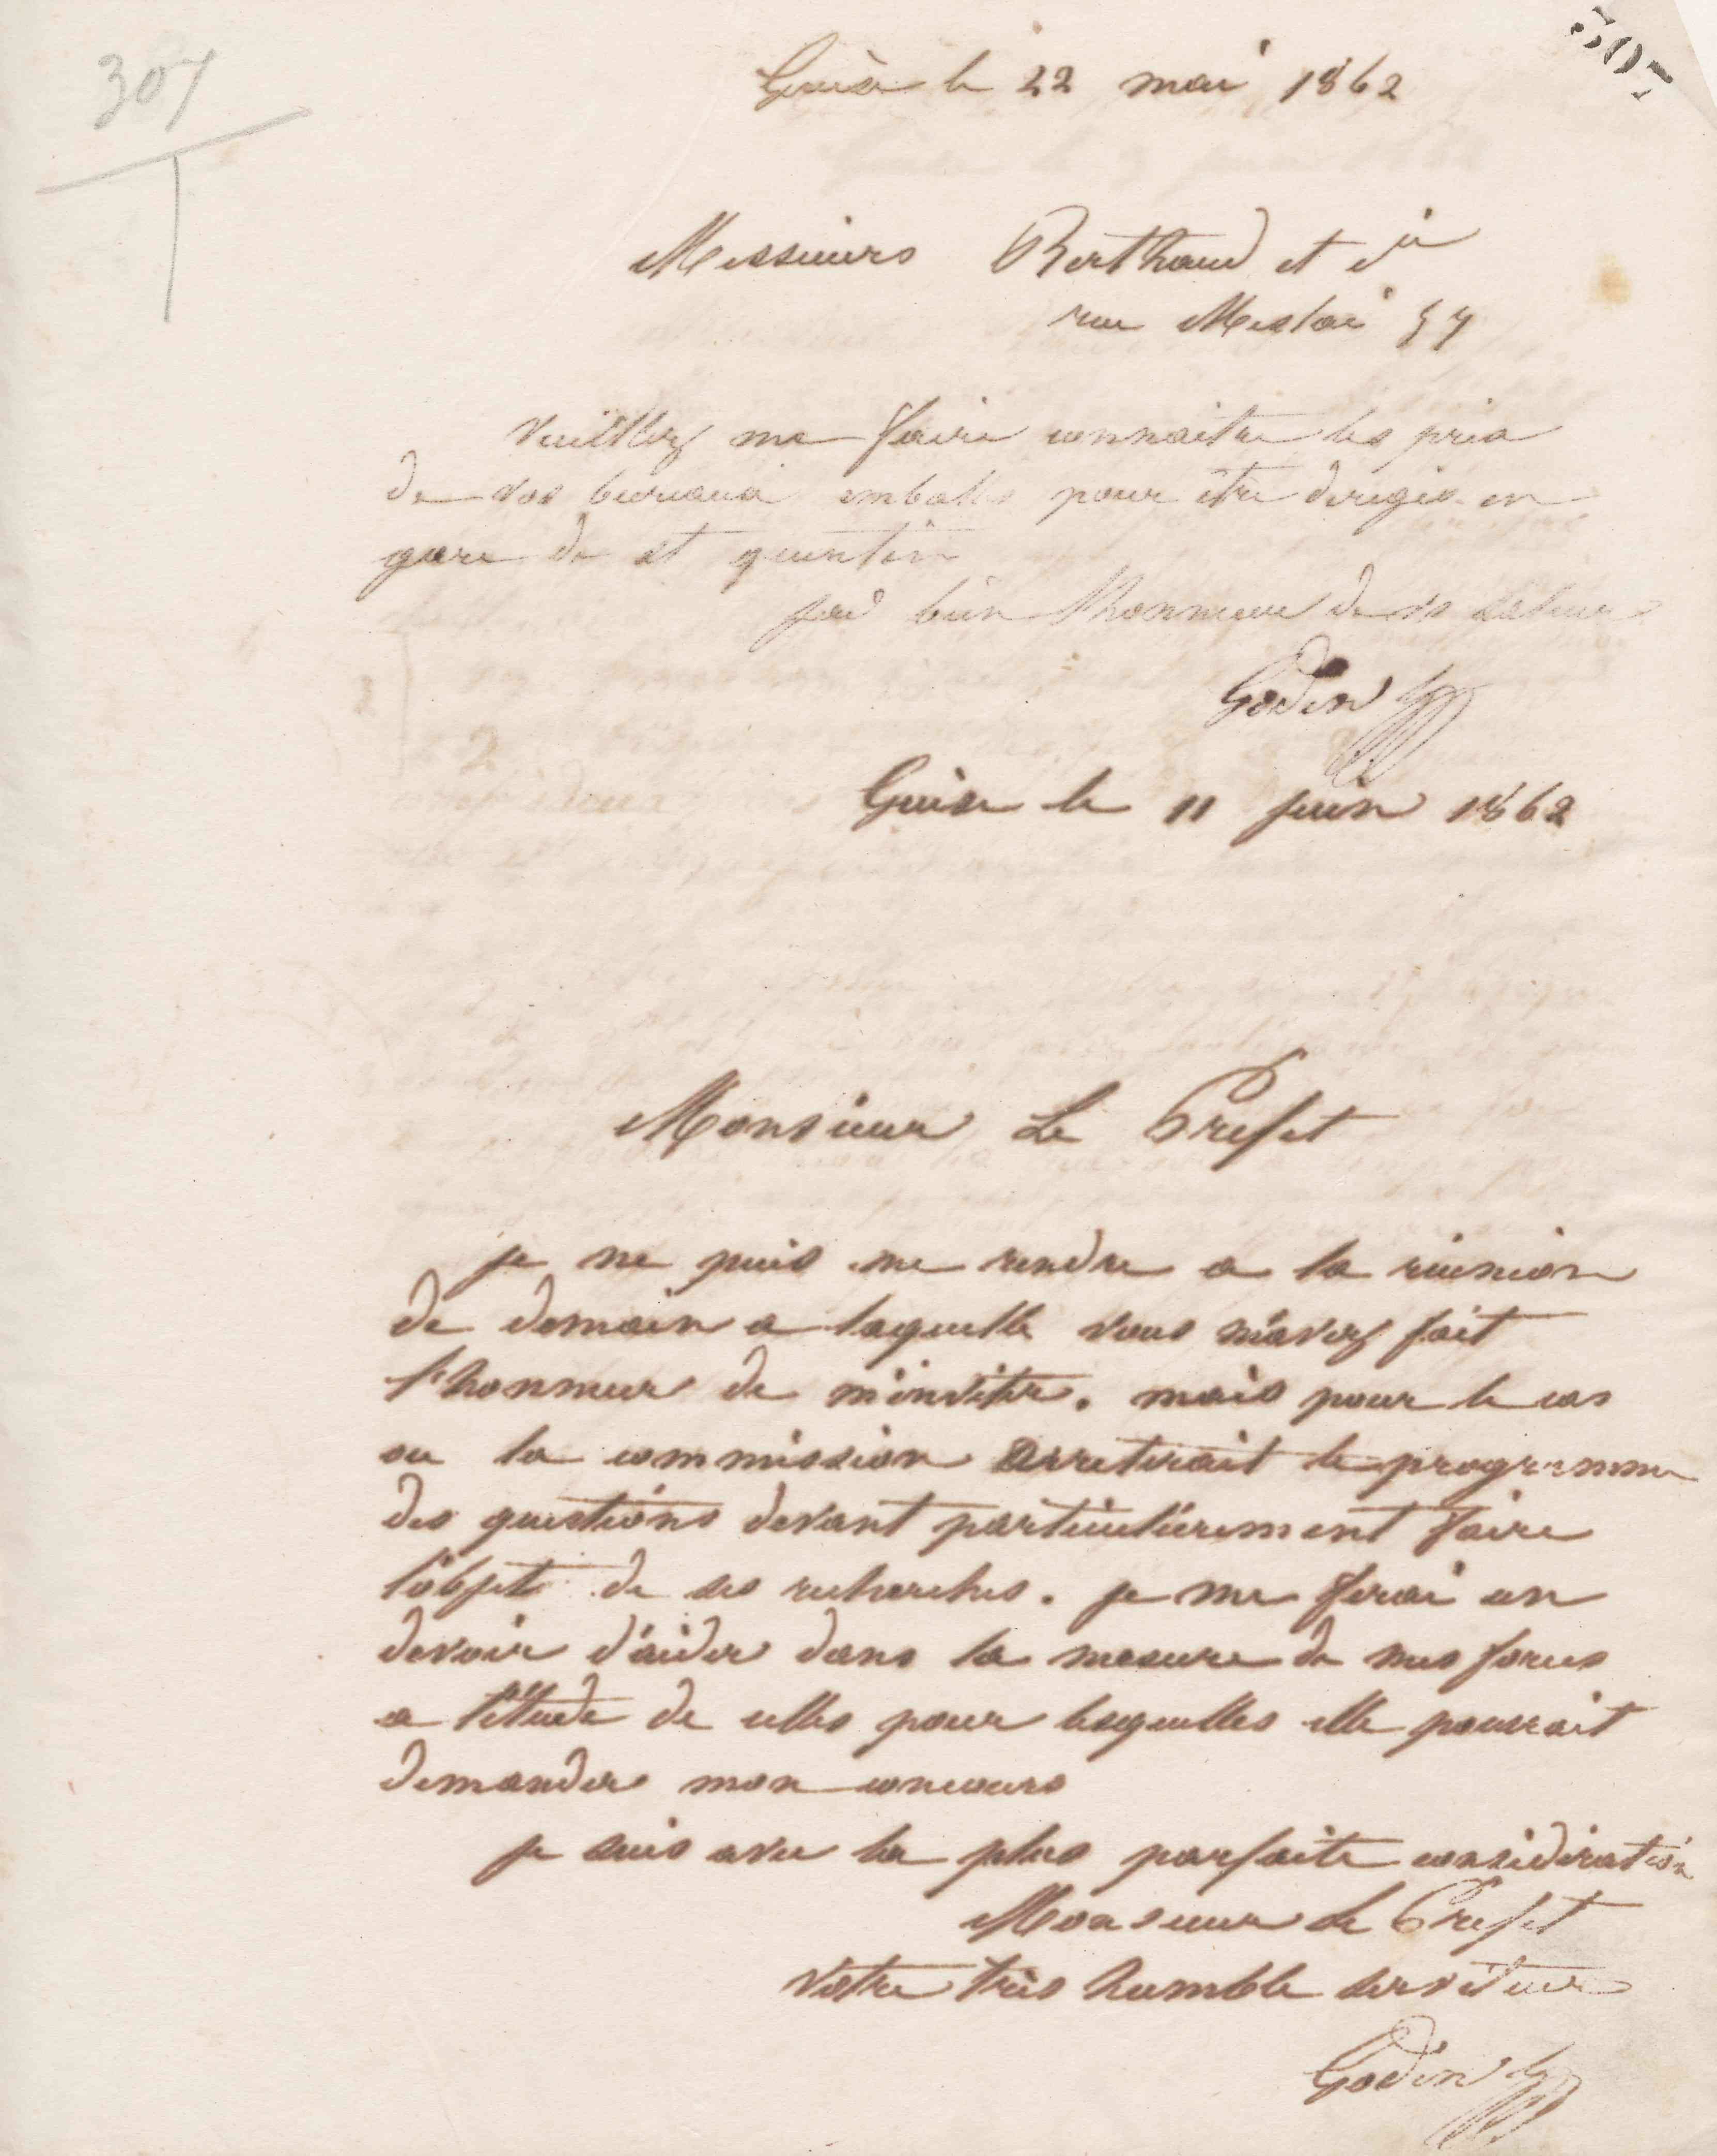 307
507
Guise le 22 mai 1862
Messieurs Berthaud et Cie
rue Meslai 57
Veuillez me faire connaitre les prix
de vos bureaux emballés pour être dirigés en
gare de st quentin
jai bien l'honneur de vs saluer
Godin
Guise le 11 juin 1862
Monsieur Le Prefet
je ne puis me rendre a la réunion
de demain a laquelle vous m'avez fait
l'honneur de m'inviter. mais pour le cas
ou la commission arreterait le programme
des questions devant particulièrement faire
l'objet de ses recherches. je me ferai un
devoir d'aider dans la mesure de mes forces
a l'étude de celles pour lesquelles elle pourrait
demander mon concours
je suis avec la plus parfaite considération
Monsieur Le Prefet
votre très humble serviteur
Godin